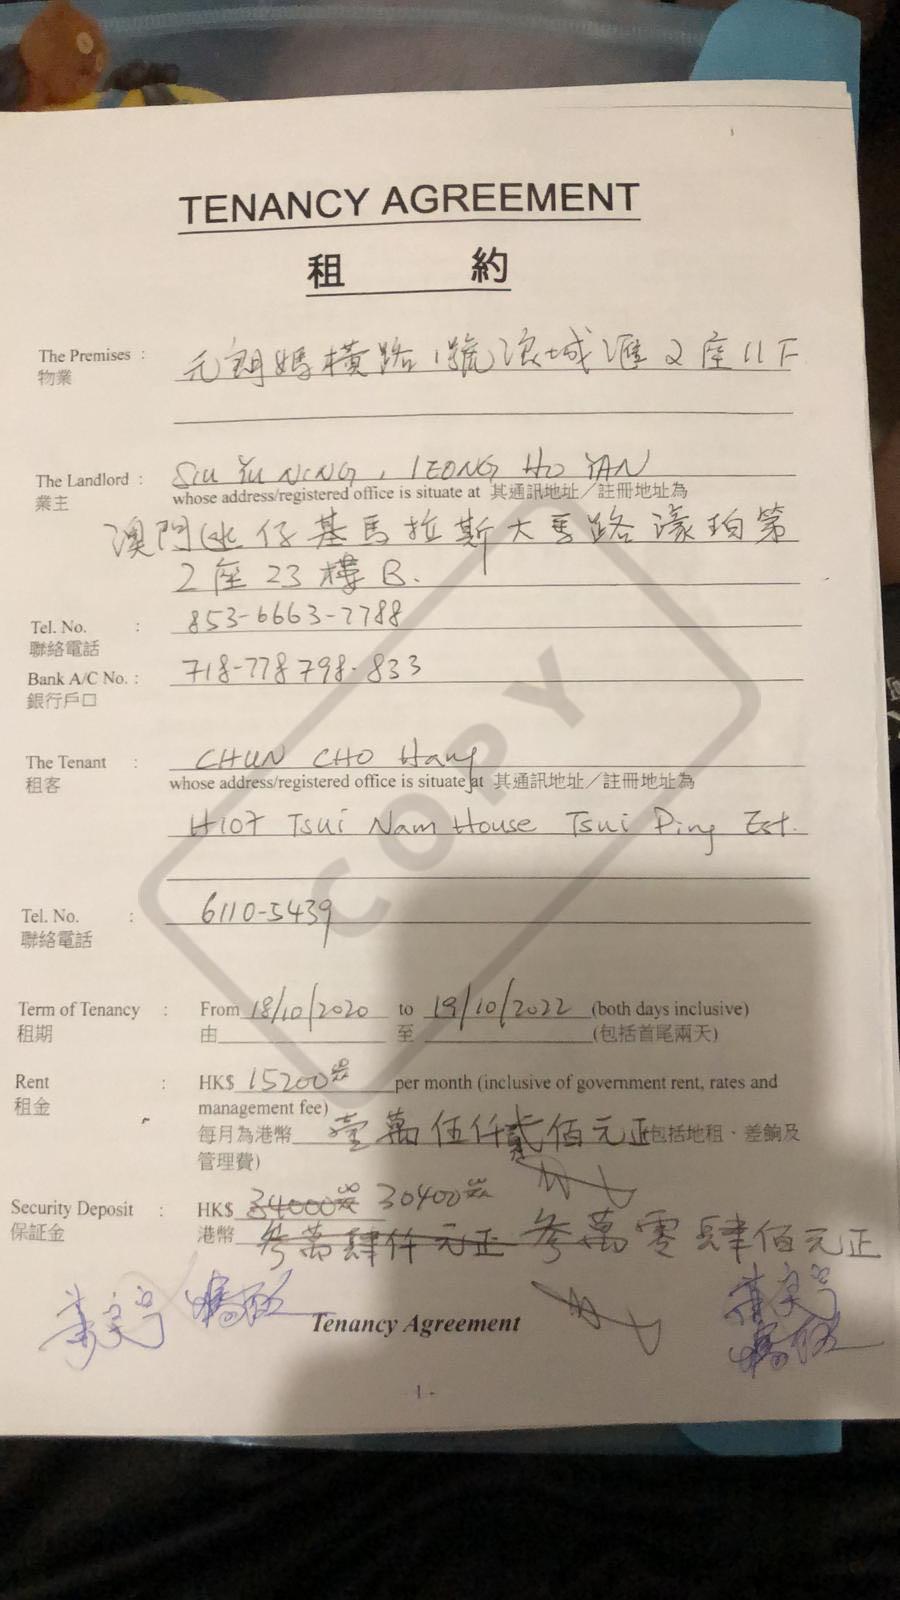 TENANCY AGREEMENT
租 約
The Premises : 元朗媽橫路1號浪城滙2座11F
物業
The Landlord : SIU YU NING, IEONG HO IAN
業主 whose address/registered office is situate at 其通訊地址／註冊地址為
澳門氹仔基馬拉斯大馬路濠珀第
2座23樓B.
Tel. No. : 853-6663-7788
聯絡電話
Bank A/C No. : 718-778798-833
銀行戶口
The Tenant : CHUN CHO Hang
租客 whose address/registered office is situate at 其通訊地址／註冊地址為
H107 Tsui Nam House Tsui Ping Est.
Tel. No. : 6110-5439
聯絡電話
Term of Tenancy : From 18/10/2020 to 19/10/2022 (both days inclusive)
租期 由 至 (包括首尾兩天)
Rent : HK$ 15200 per month (inclusive of government rent, rates and
租金 management fee)
每月為港幣 壹萬伍仟貳佰元正 包括地租、差餉及
管理費)
Security Deposit : HK$ 34000 30400
保証金 港幣 叁萬肆仟元正 叁萬零肆佰元正
Tenancy Agreement
- 1 -
COPY